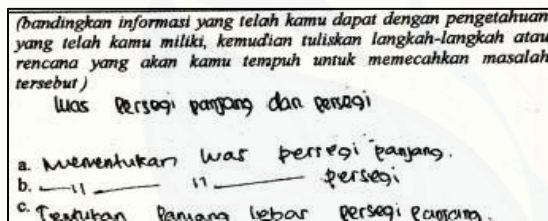 (bandingkan informasi yang telah kamu dapat dengan pengetahuan
yang telah kamu miliki, kemudian tuliskan langkah-langkah atau
rencana yang akan kamu tempuh untuk memecahkan masalah
tersebut)
luas Persegi panjang dan persegi
a. Menentukan luas persegi panjang.
b. —11— 11— persegi
c. Tentukan Panjang lebar persegi panjang.